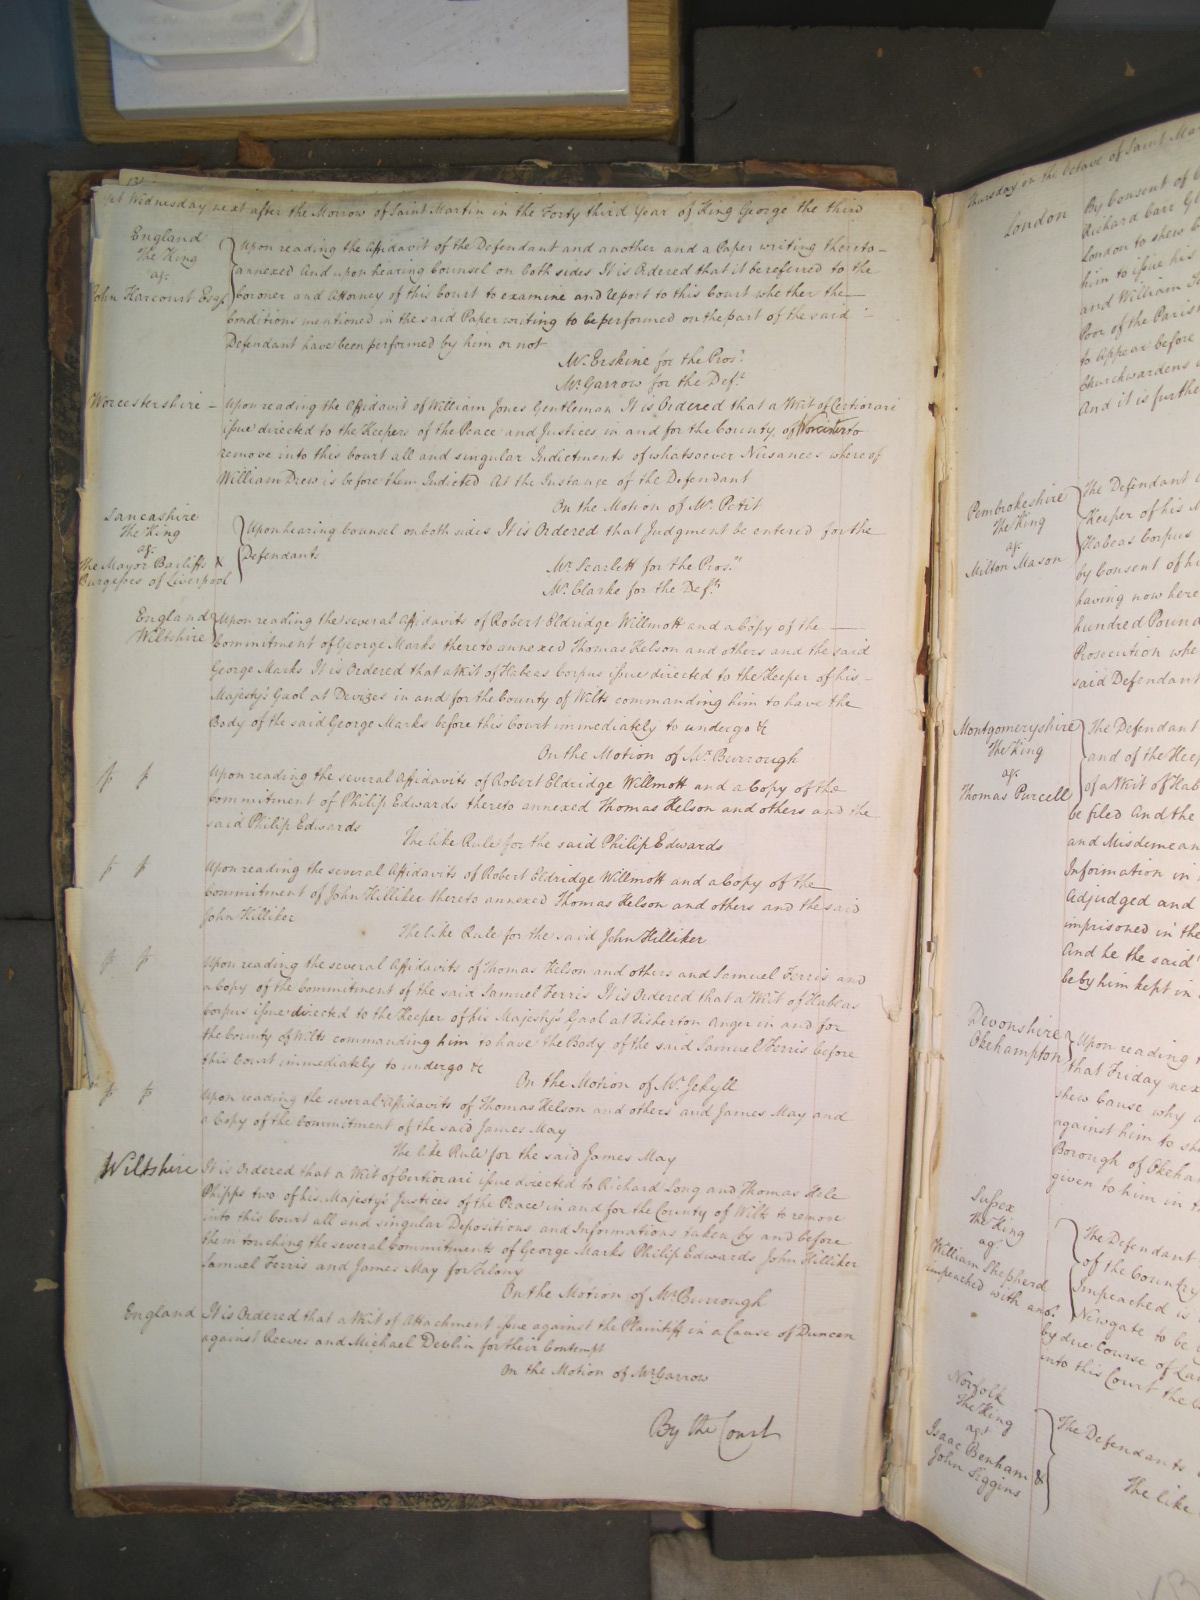 Yet Wednesday next after the Morrow of Saint Martin in the Forty third Year of King George the third
England
The King
agt
John Harcourt Esqr
Upon reading the Affidavit of the Defendant and another and a Paper writing thereto
annexed And upon hearing Counsel on both sides It is Ordered that it be referred to the
Coroner and Attorney of this Court to examine and report to this Court whether the
Conditions mentioned in the said Paper writing to be performed on the part of the said
Defendant have been performed by him or not
Mr. Erskine for the Pros.r
Mr. Garrow for the Def.t
Worcestershire
Upon reading the Affidavit of William Jones Gentleman It is Ordered that a Writ of Certiorari
issue directed to the Keepers of the Peace and Justices in and for the County of Worcester to
remove into this Court all and singular Indictments of whatsoever Nusances whereof
William Drew is before them Indicted At the Instance of the Defendant
On the Motion of Mr. Petit
Lancashire
The King
agt
The Mayor Bailiffs &
Burgesses of Liverpool
Upon hearing Counsel on both sides It is Ordered that Judgment be entered for the
Defendants
Mr. Scarlett for the Pros.rs
Mr. Clarke for the Def.ts
England
Wiltshire
Upon reading the several Affidavits of Robert Eldridge Willmott and a Copy of the
Commitment of George Marks thereto annexed Thomas Helson and others and the said
George Marks It is Ordered that a Writ of Habeas Corpus issue directed to the Keeper of his
Majesty's Gaol at Devizes in and for the County of Wilts commanding him to have the
Body of the said George Marks before this Court immediately to undergo &c
On the Motion of Mr. Burrough
Upon reading the several Affidavits of Robert Eldridge Willmott and a Copy of the
Commitment of Philip Edwards thereto annexed Thomas Helson and others and the
said Philip Edwards
The like Rule for the said Philip Edwards
Upon reading the several Affidavits of Robert Eldridge Willmott and a Copy of the
Commitment of John Hilliker thereto annexed Thomas Helson and others and the said
John Hilliker
The like Rule for the said John Hilliker
Upon reading the several Affidavits of Thomas Helson and others and Samuel Ferris and
a Copy of the Commitment of the said Samuel Ferris It is Ordered that a Writ of Habeas
Corpus issue directed to the Keeper of his Majesty's Gaol at Fisherton Anger in and for
the County of Wilts commanding him to have the Body of the said Samuel Ferris before
this Court immediately to undergo &c
On the Motion of Mr. Jekyll
Upon reading the several Affidavits of Thomas Helson and others and James May and
a Copy of the Commitment of the said James May
The like Rule for the said James May
Wiltshire
It is Ordered that a Writ of Certiorari issue directed to Richard Long and Thomas Hele
Phipps two of his Majesty's Justices of the Peace in and for the County of Wilts to remove
into this Court all and singular Depositions and Informations taken by and before
them touching the several Commitments of George Marks Philip Edwards John Hilliker
Samuel Ferris and James May for Felony
On the Motion of Mr Burrough
England
It is Ordered that a Writ of Attachment issue against the Plaintiff in a Cause of Duncan
against Reeves and Michael Devlin for their Contempt
On the Motion of Mr Garrow
By the Court
Thursday on the Octave of Saint Ma
London
By Consent of
Richard Carr
London to shew
him to issue his
and William
Poor of the Parish
to Appear before
Churchwardens
And it is further
Pembrokeshire
The King
agt
Milton Mason
The Defendant
Keeper of his M
Habeas Corpus
by Consent of hi
having now here
hundred Pound
Prosecution whe
said Defendant
Montgomeryshire
The King
agt
Thomas Purcell
The Defendant
and of the Keep
of a Writ of Hab
be filed And the
and Misdemean
Information in
Adjudged and
imprisoned in the
And he the said
be by him kept in
Devonshire
Okehampton
Upon reading
that Friday nex
shew Cause why
against him to sh
Borough of Okeham
given to him in
Sussex
The King
agt
William Shepherd
impeached with anor.
The Defendant
of the Country
Impeached is
Newgate to be
by due Course of La
into this Court the
Norfolk
The King
agt
Isaac Benham &
John Siggins
The Defendants
The like